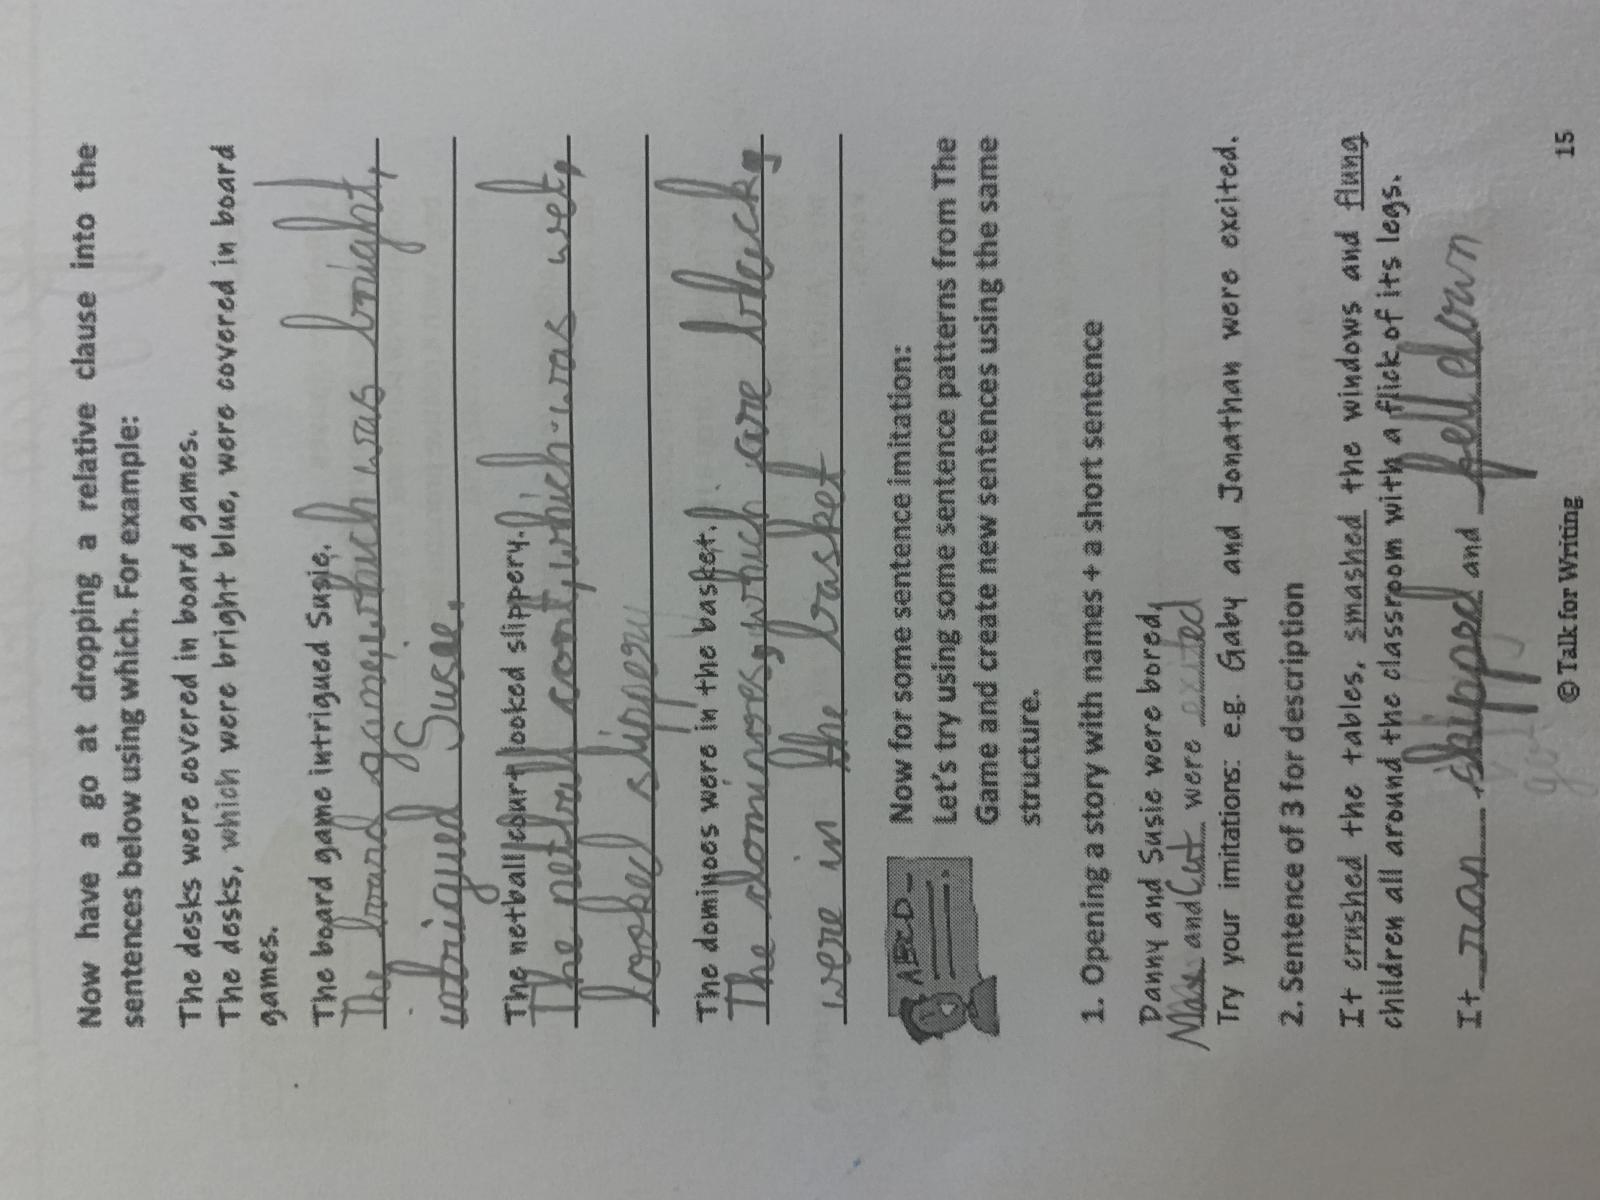 Now have a go at dropping a relative clause into the
sentences below using which. For example:
The desks were covered in board games.
The desks, which were bright blue, were covered in board
games.
The board game intrigued Susie.
The board game, which was bright,
intrigued Susie.
The netball court looked slippery.
The netball cort, which was wet,
looked slippery
The dominoes were in the basket.
The dominoes, which are black,
were in the basket
ABCD
Now for some sentence imitation:
Let's try using some sentence patterns from The
Game and create new sentences using the same
structure.
1. Opening a story with names + a short sentence
Danny and Susie were bored.
and were exited
Try your imitations: e.g. Gaby and Jonathan were excited.
2. Sentence of 3 for description
It crushed the tables, smashed the windows and flung
children all around the classroom with a flick of its legs.
It ran skipped and fell down
© Talk for Writing 15